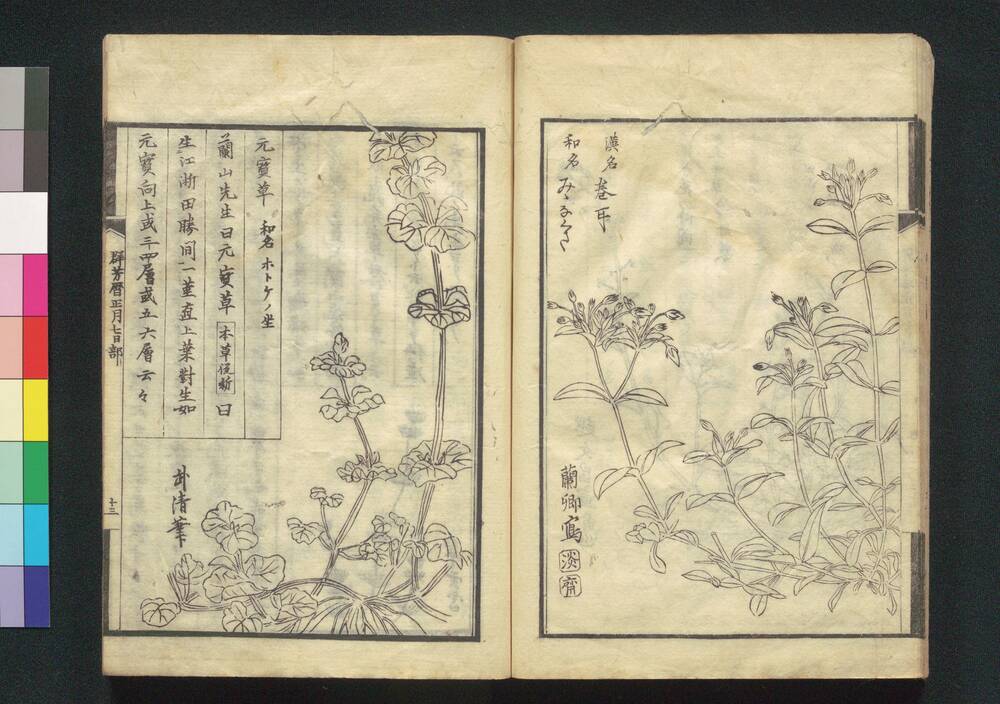 漢名 巻耳
和名 みゝなくさ
蘭卿寫
淡齋
元寶草 和名 ホトケノ坐
蘭山先生曰元寶草 本草従新 曰
生江浙田塍間一莖直上葉對生如
元寶向上或三四層或五六層云々
清筆
群芳暦正月七日部
十三